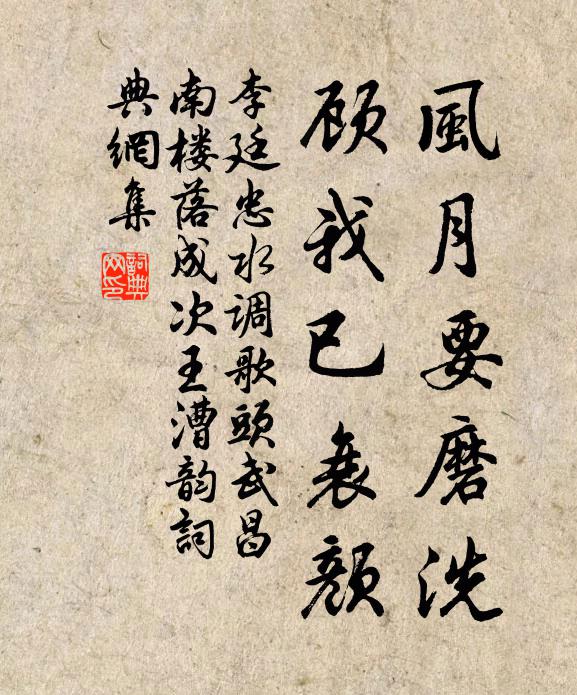 風月要磨洗
顾我已衰颜
李廷忠水调歌頭武昌
南楼落成次王漕韵詞
典網集
詞典網印